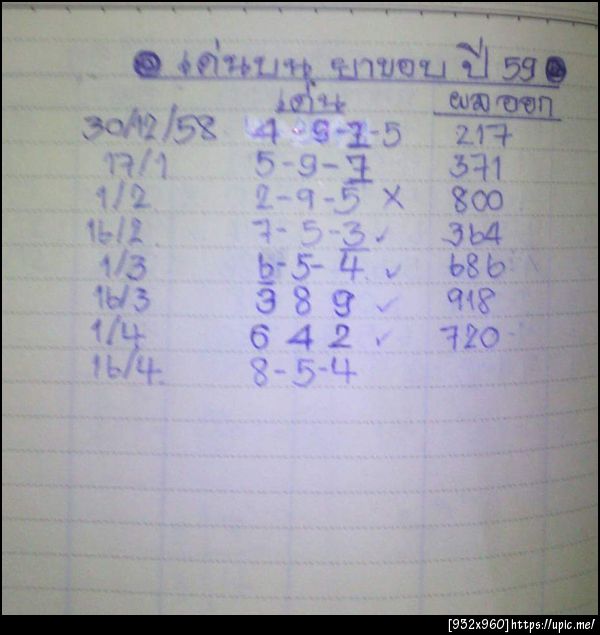 เด่นบน ยาขอบ ปี 59
เด่น ผลออก
30/12/58 4-9-7-5 217
17/1 5-9-7 371
1/2 2-9-5 X 800
16/2 7-5-3 ✓ 364
1/3 6-5-4 ✓ 686
16/3 3 8 9 ✓ 918
1/4 6 4 2 ✓ 720
16/4 8-5-4
[932x960]https://upic.me/